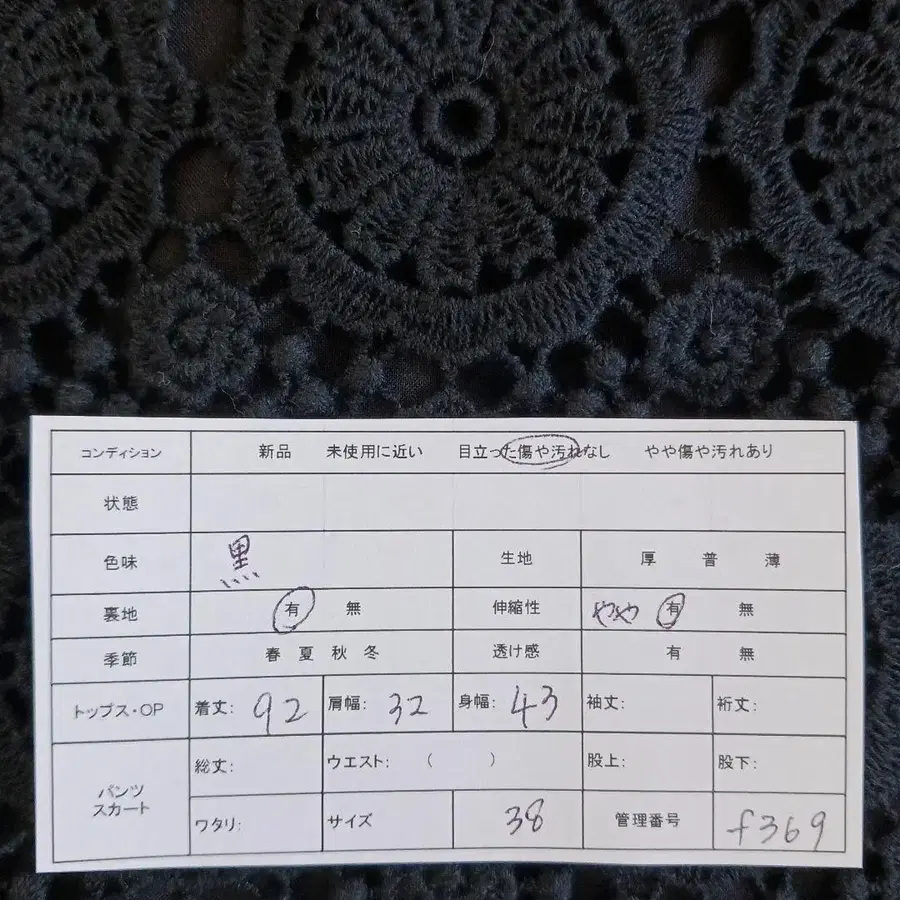 コンディション 新品 未使用に近い 目立った傷や汚れなし やや傷や汚れあり
状態
色味 黒 生地 厚 普 薄
裏地 有 無 伸縮性 やや 有 無
季節 春 夏 秋 冬 透け感 有 無
トップス・OP 着丈: 92 肩幅: 32 身幅: 43 袖丈: 裄丈:
パンツ
スカート
総丈: ウエスト: ( ) 股上: 股下:
ワタリ: サイズ 38 管理番号 f369